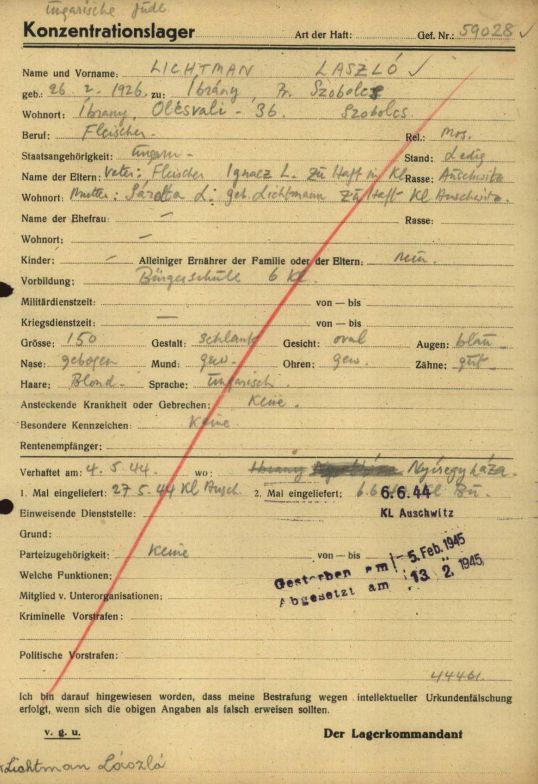 Ungarische Jude
Konzentrationslager Art der Haft: Gef. Nr.: 59028
Name und Vorname: LICHTMAN LASZLÓ
geb.: 26. 2. 1926. zu: Ibrány, Szobolcs
Wohnort: Íbrany, Olcsvali - 36. Szobolcs.
Beruf: Fleischer - Rel.: Mos.
Staatsangehörigkeit: Ungarn - Stand: Ledig
Name der Eltern: Vater: Fleischer Ignacz L. zu Haft in Kl Rasse: Auschwitz
Wohnort: Mutter: Sarolta L: geb. Lichtmann zu Haft Kl Auschwitz.
Name der Ehefrau: — Rasse:
Wohnort: —
Kinder: — Alleiniger Ernährer der Familie oder der Eltern: nein.
Vorbildung: Bürgerschule 6 Kl.
Militärdienstzeit: von — bis
Kriegsdienstzeit: — von — bis
Grösse: 150 Gestalt: schlank Gesicht: oval Augen: blau
Nase: gebogen Mund: gew. Ohren: gew. Zähne: gut
Haare: Blond. Sprache: ungarisch.
Ansteckende Krankheit oder Gebrechen: Keine.
Besondere Kennzeichen: Keine
Rentenempfänger:
Verhaftet am: 4. 5. 44. wo: Nyíregyháza.
1. Mal eingeliefert: 27 5. 44 Kl Ausch. 2. Mal eingeliefert: 6.6.44 Kl Bu.
Einweisende Dienststelle: KL Auschwitz
Grund:
Parteizugehörigkeit: Keine von — bis
Welche Funktionen:
Gestorben am 5. Feb. 1945
Abgesetzt am 13. 2. 1945
Mitglied v. Unterorganisationen:
Kriminelle Vorstrafen:
Politische Vorstrafen:
44461
Ich bin darauf hingewiesen worden, dass meine Bestrafung wegen intellektueller Urkundenfälschung
erfolgt, wenn sich die obigen Angaben als falsch erweisen sollten.
v. g. u. Der Lagerkommandant
Lichtman László